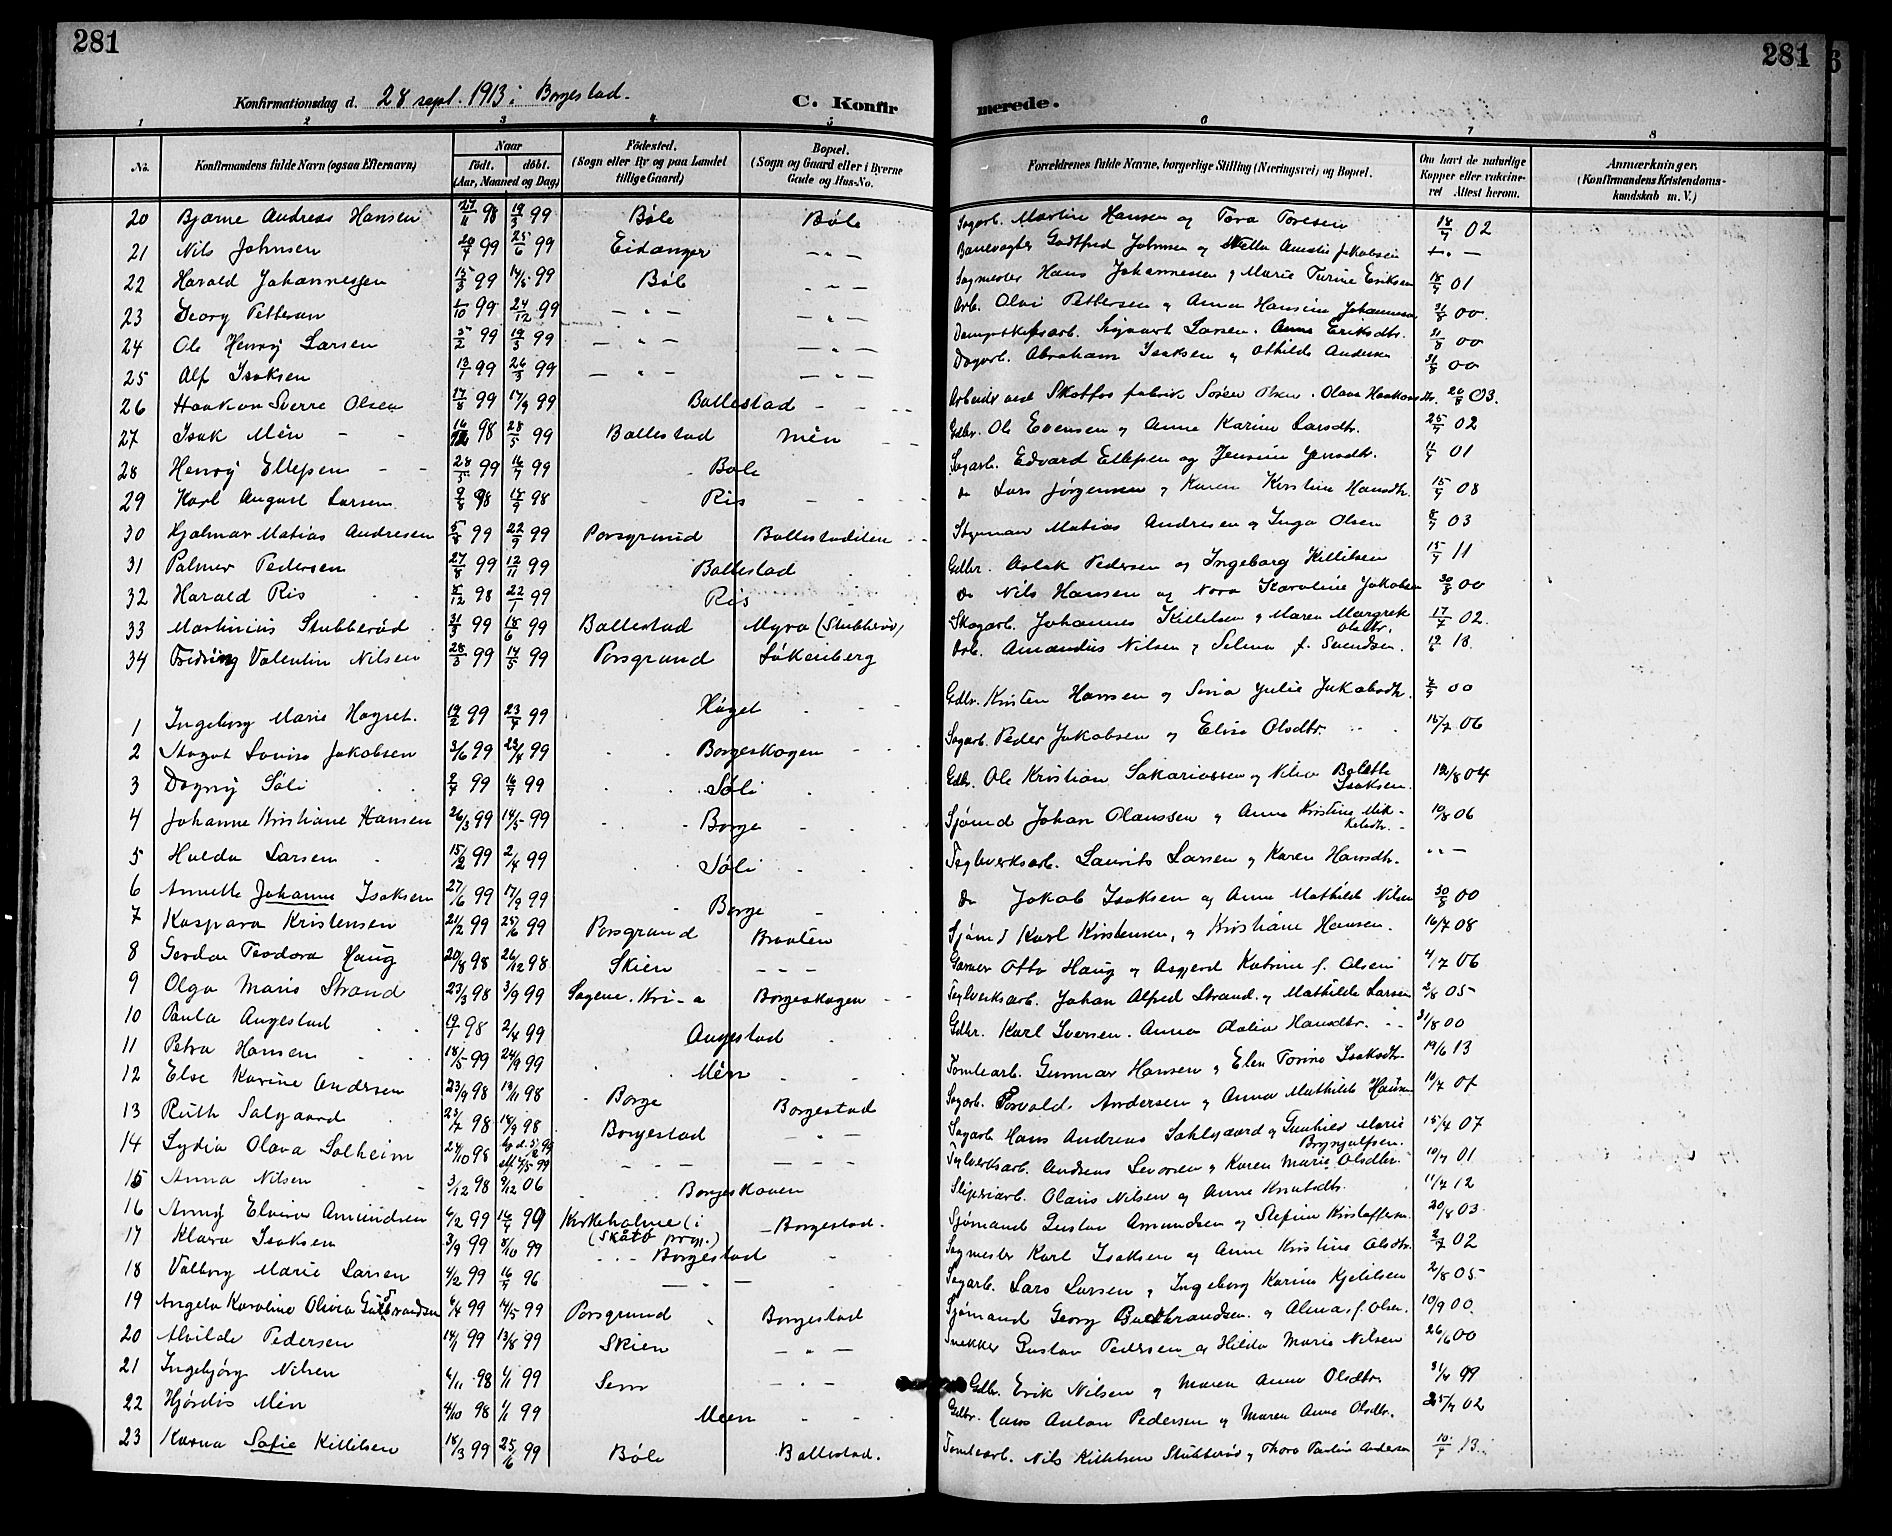 281
281
Konfirmationsdag d. 28 sept. 1913 i Borgestad.
C. Konfir
merede.
1 2 3 4 5 6 7 8
No.
Konfirmandens fulde Navn (ogsaa Efternavn)
Naar
født. døbt.
(Aar, Maaned og Dag)
Fødested.
(Sogn eller By og paa Landet
tillige Gaard)
Bopæl.
(Sogn og Gaard eller i Byerne
Gade og Hus-No.
Forældrenes fulde Navne, borgerlige Stilling (Næringsvei) og Bopæl.
Om havt de naturlige
Kopper eller vakcine-
ret Attest herom.
Anmærkninger.
(Konfirmandens Kristendoms-
kundskab m. V.)
20 Bjarne Andreas Hansen 27/11 98 19/3 99 Bøle Bøle Sagarb. Martin Hansen og Tora Toresen 18/7 02
21 Nils Johnsen 20/4 99 25/6 99 Eidanger - " - Banevogter Godtfred Johnsen og Amalie Jakobsen - " -
22 Harald Johannessen 15/3 99 14/5 99 Bøle - " - Sagmester Hans Johannessen og Marie Turine Eriksen 18/7 01
23 Georg Pettersen 1/10 99 24/12 99 - " - - " - Arb. Olai Pettersen og Anna Hansine Johannesen 31/8 00.
24 Ole Henry Larsen 5/2 99 19/3 99 - " - - " - Dampskibsarb. Sigvart Larsen. Anne Eriksdtr. 31/8 00
25 Alf Isaksen 13/1 99 26/3 99 - " - - " - Dagarb. Abraham Isaksen og Othilde Andersen 31/8 00
26 Haakon Sverre Olsen 17/8 99 17/9 99 Ballestad Arbeider ved Skotfos fabrik Søren Olsen. Olava Haakonsdtr. 26/8 03.
27 Isak Mén 16/12 98 28/5 99 Ballestad Mén Gdbr. Ole Evensen og Anne Karine Larsdtr. 25/7 02
28 Henry Ellefsen 28/5 99 16/7 99 Bøle Sagarb. Edvard Ellefsen og Jensine Jensdtr. 11/7 01
29 Karl August Larsen 9/8 98 17/9 98 Ris do Lars Jørgensen og Karen Kirstine Hansdtr. 15/7 08
30 Hjalmar Matias Andresen 5/8 99 22/9 99 Porsgrund Ballestadilen Styrmann Matias Andresen og Inga Olsen 8/7 03
31 Palmer Pedersen 27/8 99 12/11 99 Ballestad Gdbr. Aslak Pedersen og Ingeborg Killilsen 15/7 11
32 Harald Ris 5/12 98 22/1 99 Ris do Nils Hansen og Nora Karoline Jakobsen 30/8 00
33 Martinius Stubberød 31/3 99 18/6 99 Ballestad Myra (Stubberød) Skogarb. Johannes Killilsen og Maren Margrete Olsdtr. 17/7 02.
34 Valentin Nilsen 28/3 99 14/5 99 Porsgrund Løkenberg Arb. Amandus Nilsen og Selma f. Svendsen. 12/6 13.
1 Ingeborg Marie Høgset. 19/2 99 23/4 99 Høget Gdbr. Kristen Hansen og Sina Julie Jakobsdtr. 00
2 Aagot Lovise Jakobsen 3/6 99 23/4 99 Borgeskogen Sagarb. Peder Jakobsen og Elise Olsdtr. 16/7 06
3 Dagny Søli 2/7 99 16/7 99 Søli Gdbr. Ole Kristian Sakariassen og Bolette Isaksen. 12/8 04
4 Johanne Kristiane Hansen 26/3 99 14/5 99 Borge Sjømd Johan Olaussen og Anne Kristine Mik-
kelsdtr. 10/8 06
5 Hulda Larsen 15/2 99 2/4 99 Søli Teglverksarb. Laurits Larsen og Karen Hansdtr. - " -
6 Annette Johanne Isaksen 27/6 99 17/9 99 Borge do Jakob Isaksen og Anne Mathilde Nilsen 30/8 00
7 Kaspara Kristensen 21/2 99 25/6 99 Porsgrund Braaten Sjømd Karl Kristensen, og Kristiane Hansen. 16/7 08
8 Gerda Teodora Haug 20/8 98 26/12 98 Skien - - - Garver Otto Haug og Asgjerd Katrine f. Olsen 4/7 06
9 Olga Marie Strand 23/3 98 3/9 99 Sagene. Kri-a Borgeskogen Teglverksarb. Johan Alfred Strand. og Mathilde Larsen 2/8 05
10 Paula Augestad 19/1 98 2/4 99 Augestad Gdbr. Karl Iversen. Anna Olalia Hansdtr. 31/8 00
11 Petra Hansen 18/5 99 24/9 99 Mén Tomtearb. Gunnar Hansen og Elen Torine Isaksdtr. 19/6 13
12 Else Karine Andersen 23/9 98 13/11 98 Borge Borgestad Sagarb. Torvald Andersen og Anna Mathilde Hansen 11/7 01
13 Ruth Salgaard 23/7 98 14/9 98 Borgestad - " - Sagarb. Hans Andreas Sahlgaard og Gunhild Marie Brynjulfsen. 15/4 07
14 Lydia Olava Solheim 24/10 98 - - - - - - Teglverksarb. Andreas Severen og Karen Marie Olsdtr. 10/7 01
15 Anna Nilsen 3/12 98 9/12 06 Borgeskoven Sliperiarb. Olaus Nilsen og Anne Knutsdtr. 11/7 12
16 Anny Elvira Amundsen 6/2 99 16/7 99 Kirkeholme (i
(Skåtø prgj.) Borgestad. Sjømand Gustav Amundsen og Stefine Kristoffersen. 20/8 03.
17 Klara Isaksen 3/9 99 8/10 99 Borgestad Sagmester Karl Isaksen og Anne Kristine Olsdtr. 2/7 02
18 Valborg Marie Larsen 4/2 99 16/7 96 - " - Sagarb. Lars Larsen og Ingeborg Karine Kjelilsen 2/8 05
19 Angela Karoline Olivia Gulbrandsen 6/4 99 14/5 99 Porsgrund Borgestad Sjømand Georg Gulbrandsen. og Alma f. Olsen. 10/9 00.
20 Alvilde Pedersen 14/1 99 13/8 99 Skien - " - Snekker Gustav Pedersen og Hilda Marie Nilsen 26/6 00
21 Ingebjørg Nilsen 6/11 98 1/1 99 Sem - " - Gdbr. Erik Nilsen og Maren Anne Olsdtr. 31/4 99
22 Hjørdis Mén 4/10 98 1/1 99 Méen Gdbr. Hans Anton Pedersen og Maren Anne Olsdtr. 25/7 02
23 Karna Sofie Killilsen 18/3 99 25/6 99 Bøle Ballestad. Tomtearb. Nils Killilsen Stubberød og Thora Andersen 10/4 13.